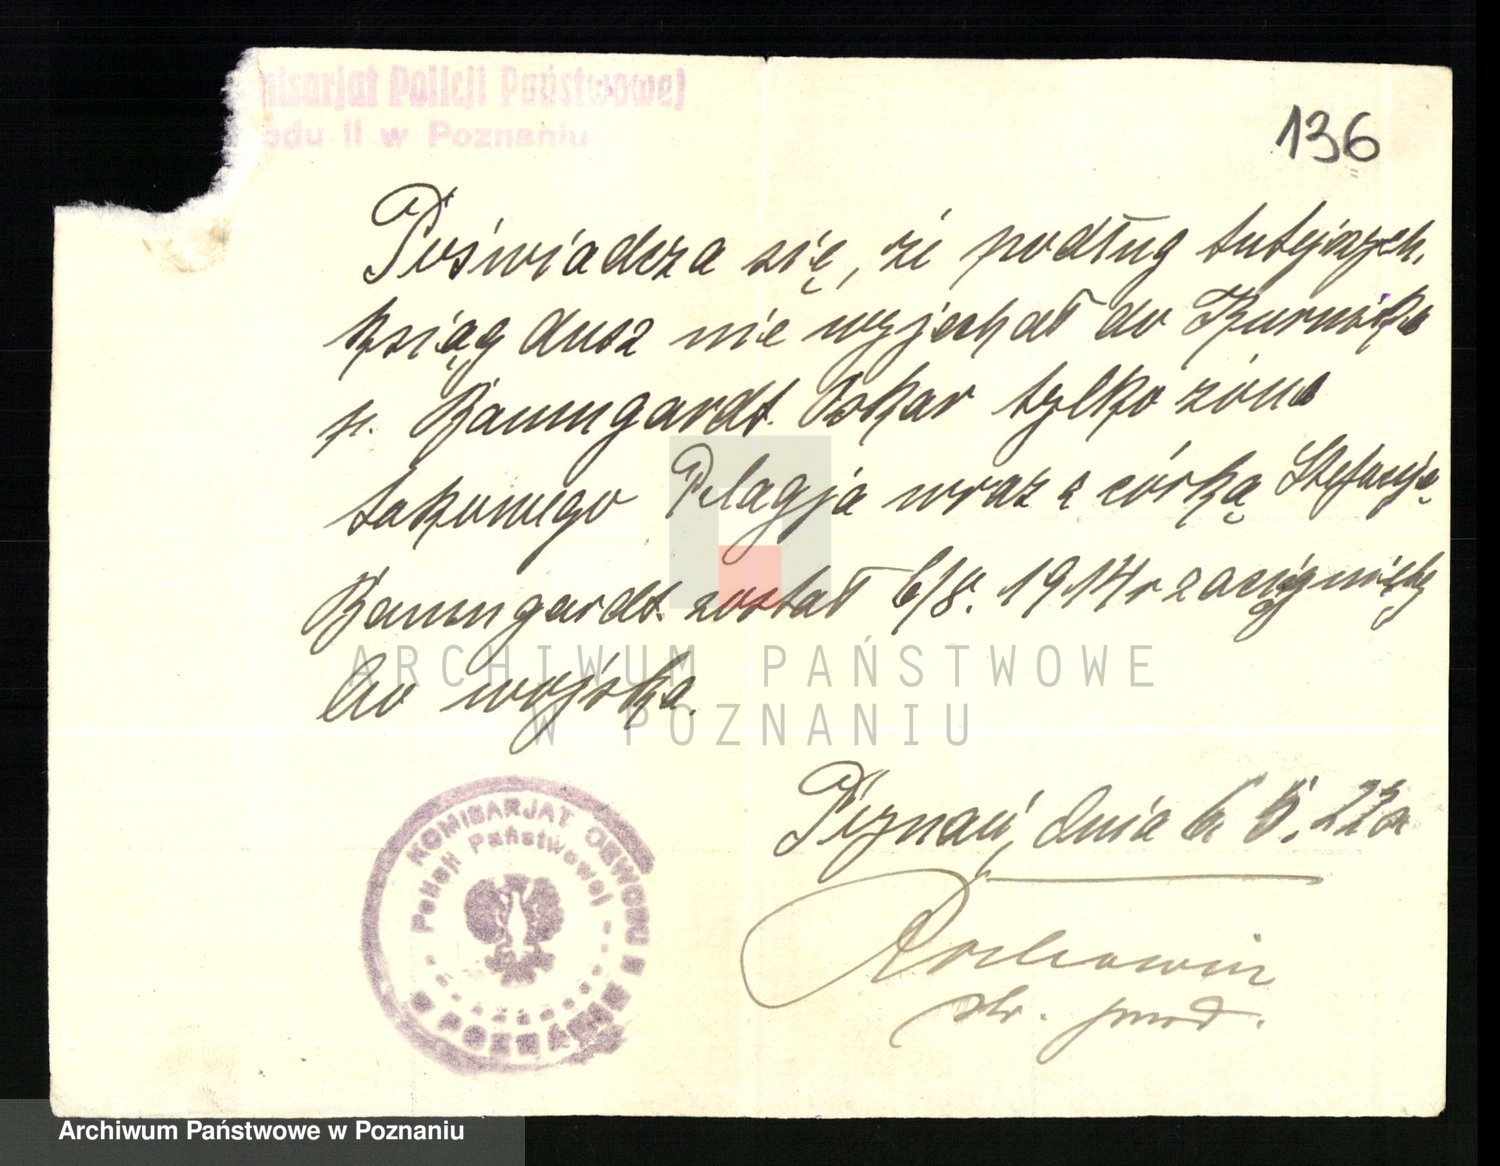 misarjat Policji Państwowej
odu II w Poznaniu
136
Poświadcza się, że podług tutejszych
ksiąg dusz nie wyjechał do Kurnika
p. Baumgardt Oskar tylko żóna
takowego Pelagja wraz z córką Stefanją
Baumgardt został 6/8. 1914 r zaciągnięty
do wojska.
ARCHIWUM PAŃSTWOWE
W POZNANIU
Poznań, dnia 6. 5. 22 r
st. przod.
KOMISARJAT OBWODU II W POZNANIU
Policji Państwowej
Archiwum Państwowe w Poznaniu